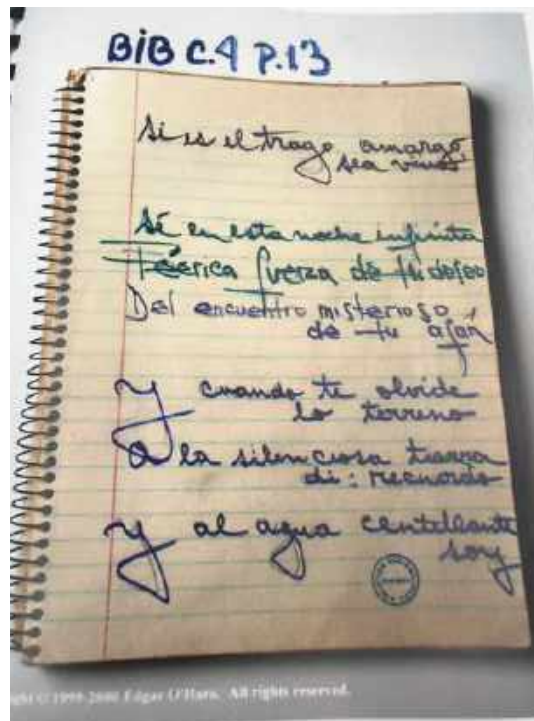 BiB C.4 P.13
Si es el trago amargo,
sea vino
Sé en esta noche infinita
Féerica fuerza de tu deseo
Del encuentro misterioso
de tu afán
Y cuando te olvide
lo terreno
a la silenciosa tierra
di: recuerdo
Y al agua centelleante
soy
1999-2000 Edgar O'Hara. All rights reserved.